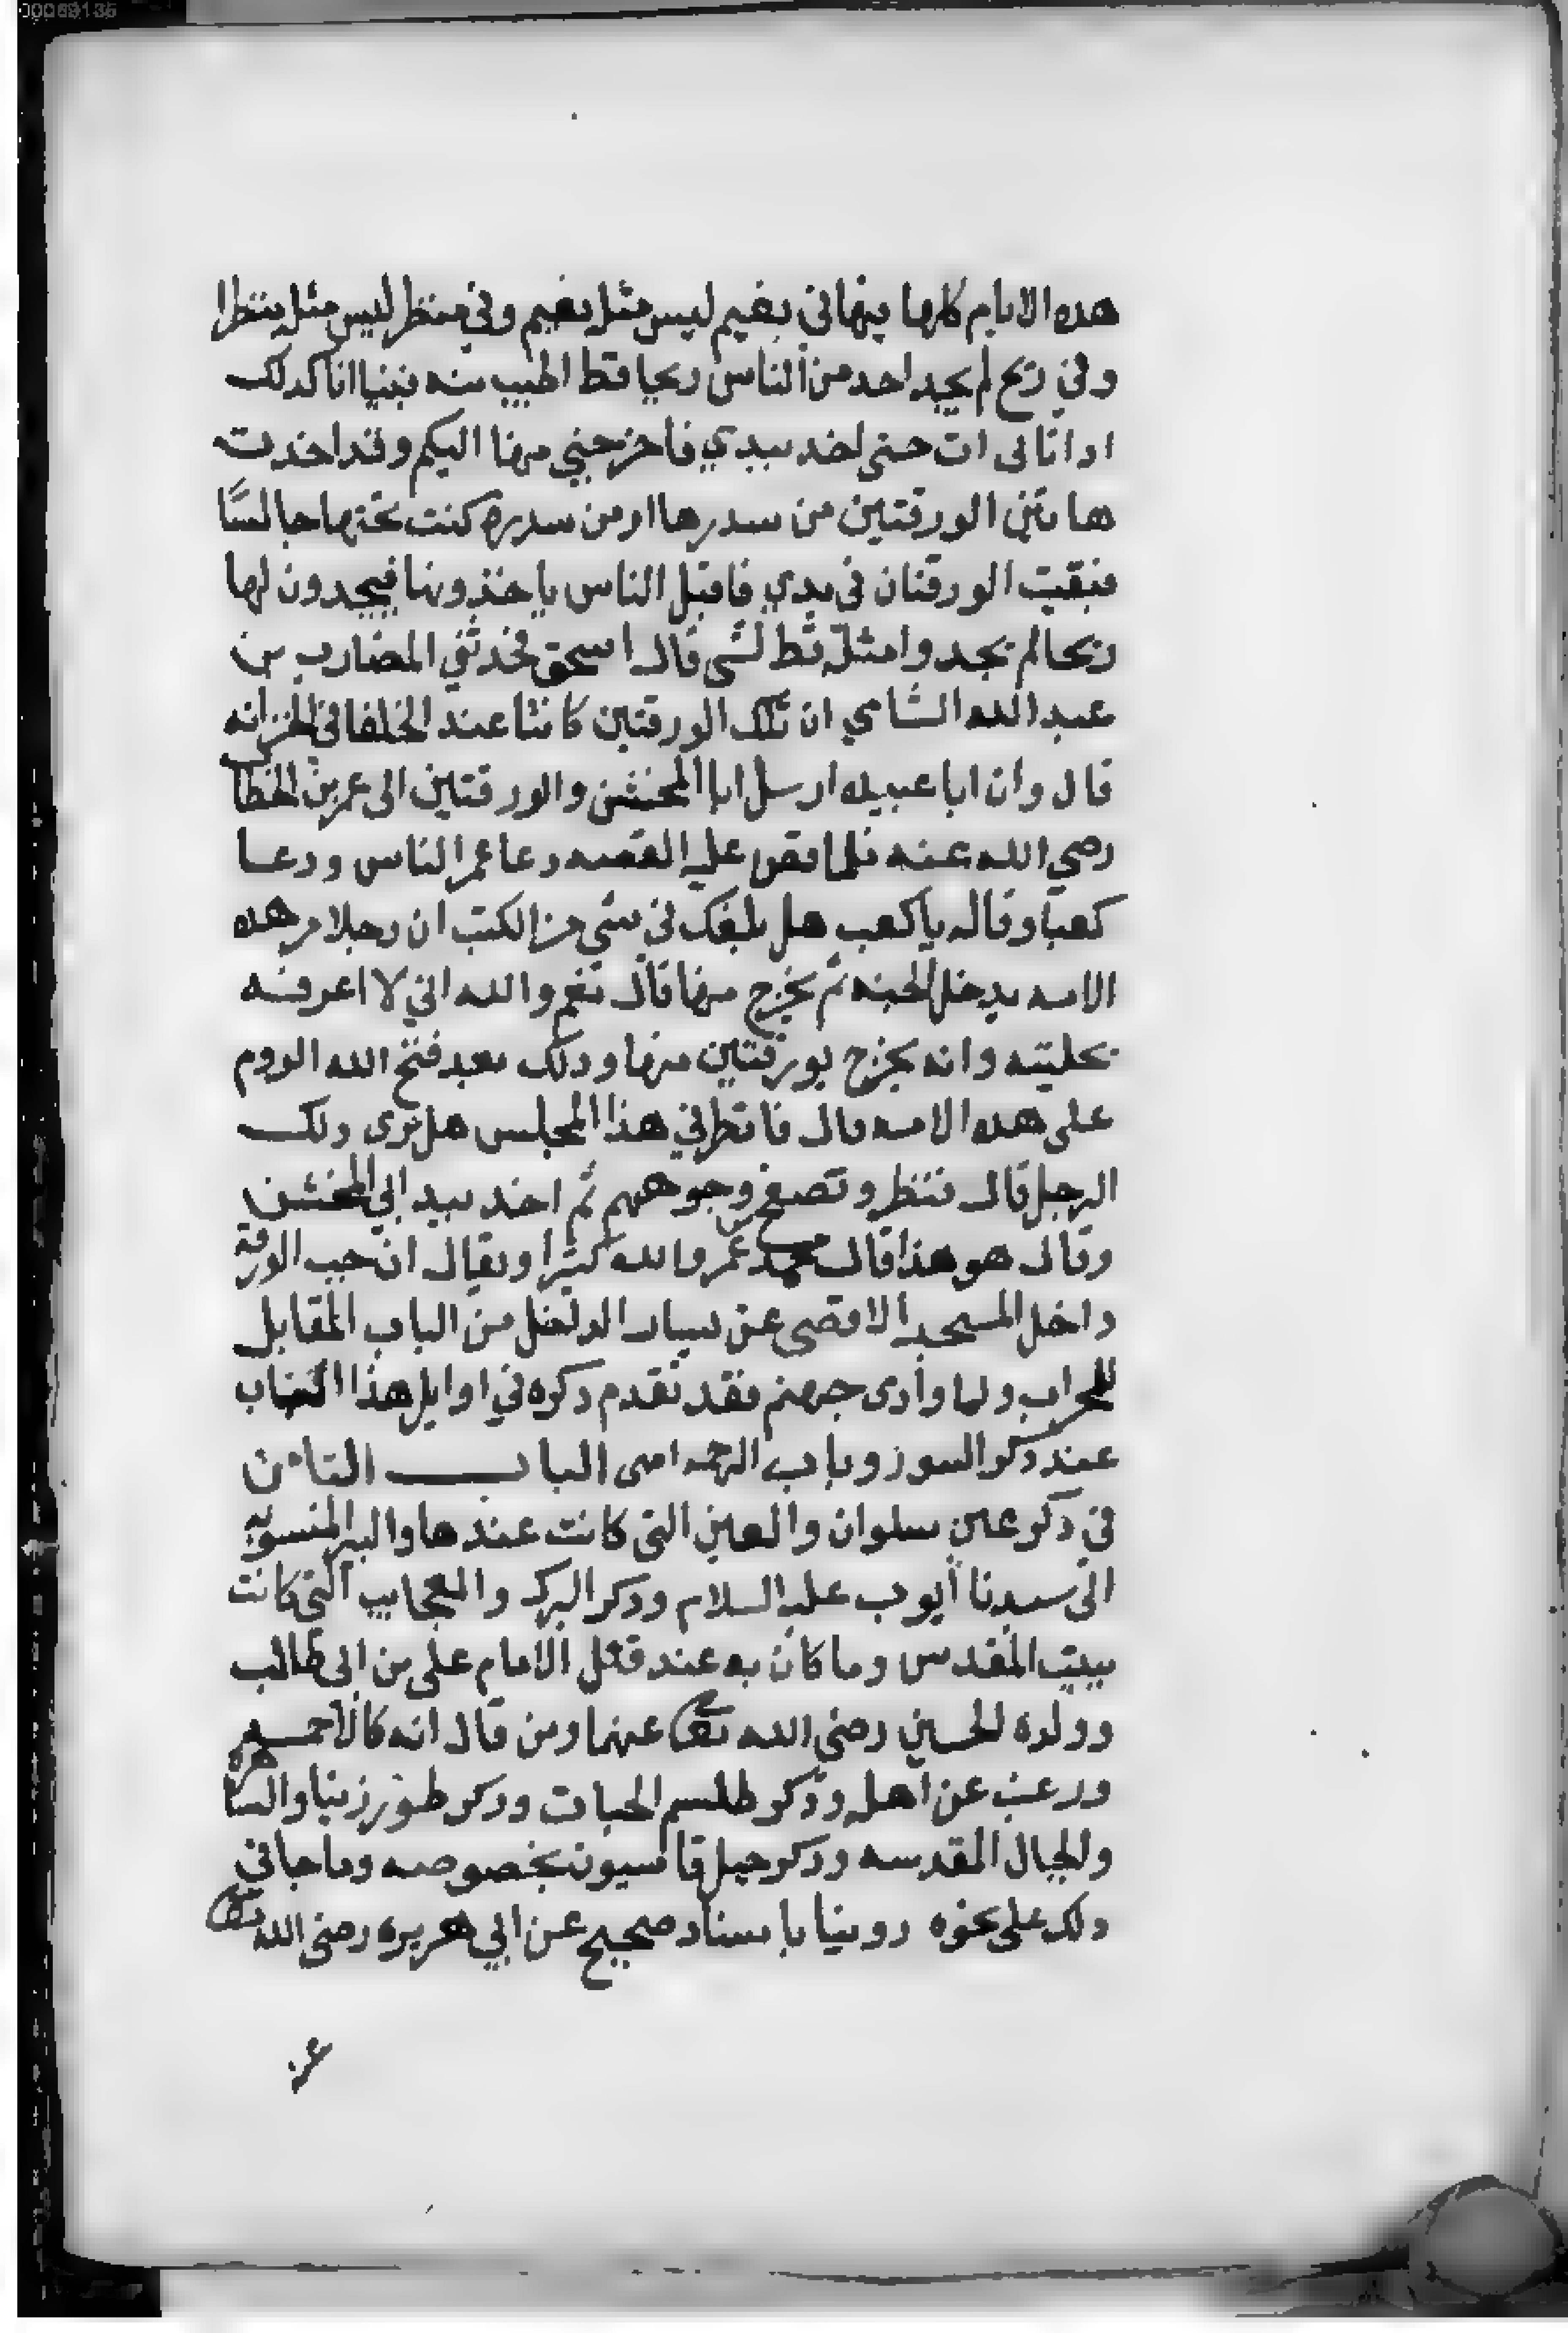 00069135
هده الايام كلها منها في نعيم ليس مثل نعيم وفي منظر ليس مثل منظرا
وفي ريح لم يجد احد من الناس ريحا قط اطيب منه فبينا انا كدلك
ادا اتانى ات حتى اخد بيدي فاخرجني منها اليكم وقد اخدت
هاتين الورقتين من سدرها او من سدرة كنت تحتها جالسًا
فبقيت الورقتان فى يدي فاقبل الناس ياخذونها فيجدون لها
ريحا لم يجدوا مثله قط لشى قال اسحق فحدثني المضارب بن
عبد الله الشامي ان تلك الورقتين كانتا عند الخلفا في الخزانه
قال وان ابا عبيده ارسل ابا المخنشن والورقتين الى عمر بن الخطاب
رضي الله عنه فلما قص عليه القصه دعا عمر الناس ودعا
كعبا وقال يا كعب هل بلغك في شي من الكتب ان رجلا من هده
الامه يدخل الجنه ثم يخرج منها قال نعم والله اني لا اعرفه
بحليته وانه يخرج بورقتين منها ودلك بعد فتح الله الروم
على هده الامه قال فانظر في هذا المجلس هل ترى دلك
الرجل قال فنظر وتصفح وجوههم ثم اخد بيد ابي المخنشن
وقال هو هذا قال فحمد عمر والله كثيرا ويقال ان جب الورقة
داخل المسجد الاقصى عن يسار الداخل من الباب المقابل
للمحراب واما وادى جهنم فقد تقدم دكره في اوايل هذا الكتاب
عند دكر السور وباب الرحمه امى الباب الثامن
في دكر عين سلوان والعين التى كانت عندها والبير المنسوبه
الى سيدنا أيوب عليه السلام ودكر البرك والعجايب التي كانت
ببيت المقدس وما كان به عند قتل الامام على بن ابى طالب
وولده الحسين رضي الله تعا عنهما ومن قال انه كالاجمه
ورغب عن اهله ودكر طلسم الحيات ودكر طور زيتا والساهره
والجبال المقدسه ودكر جبل قاسيون بخصوصه وما جا في
دلك على نحوه روينا باسناد صحيح عن ابي هريره رضى الله تعا
عن